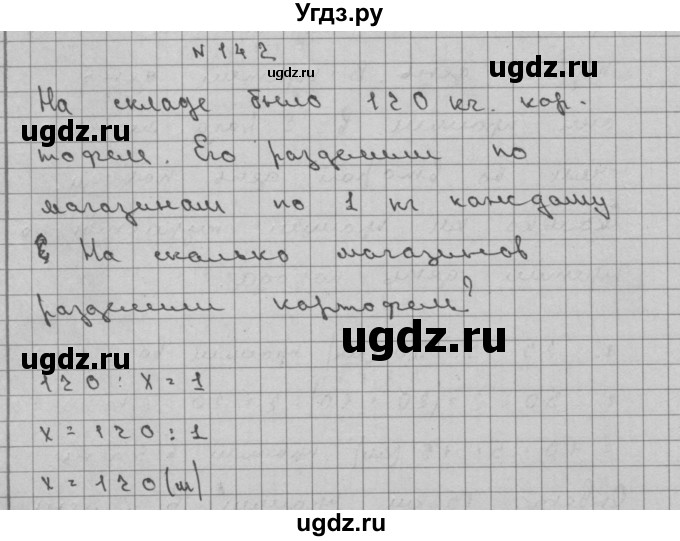 Угдз.ру
N 142
ugdz.ru
ugdz.ru
На складе было 120 кг. кар-
ugdz.ru
тофеля. Его разделили по
магазинам по 1 кг каждому
На сколько магазинов
разделили картофель?
ugdz.ru
ugdz.ru
120 : x = 1
x = 120 : 1
x = 120 (м)
ugdz.ru
ugdz.ru